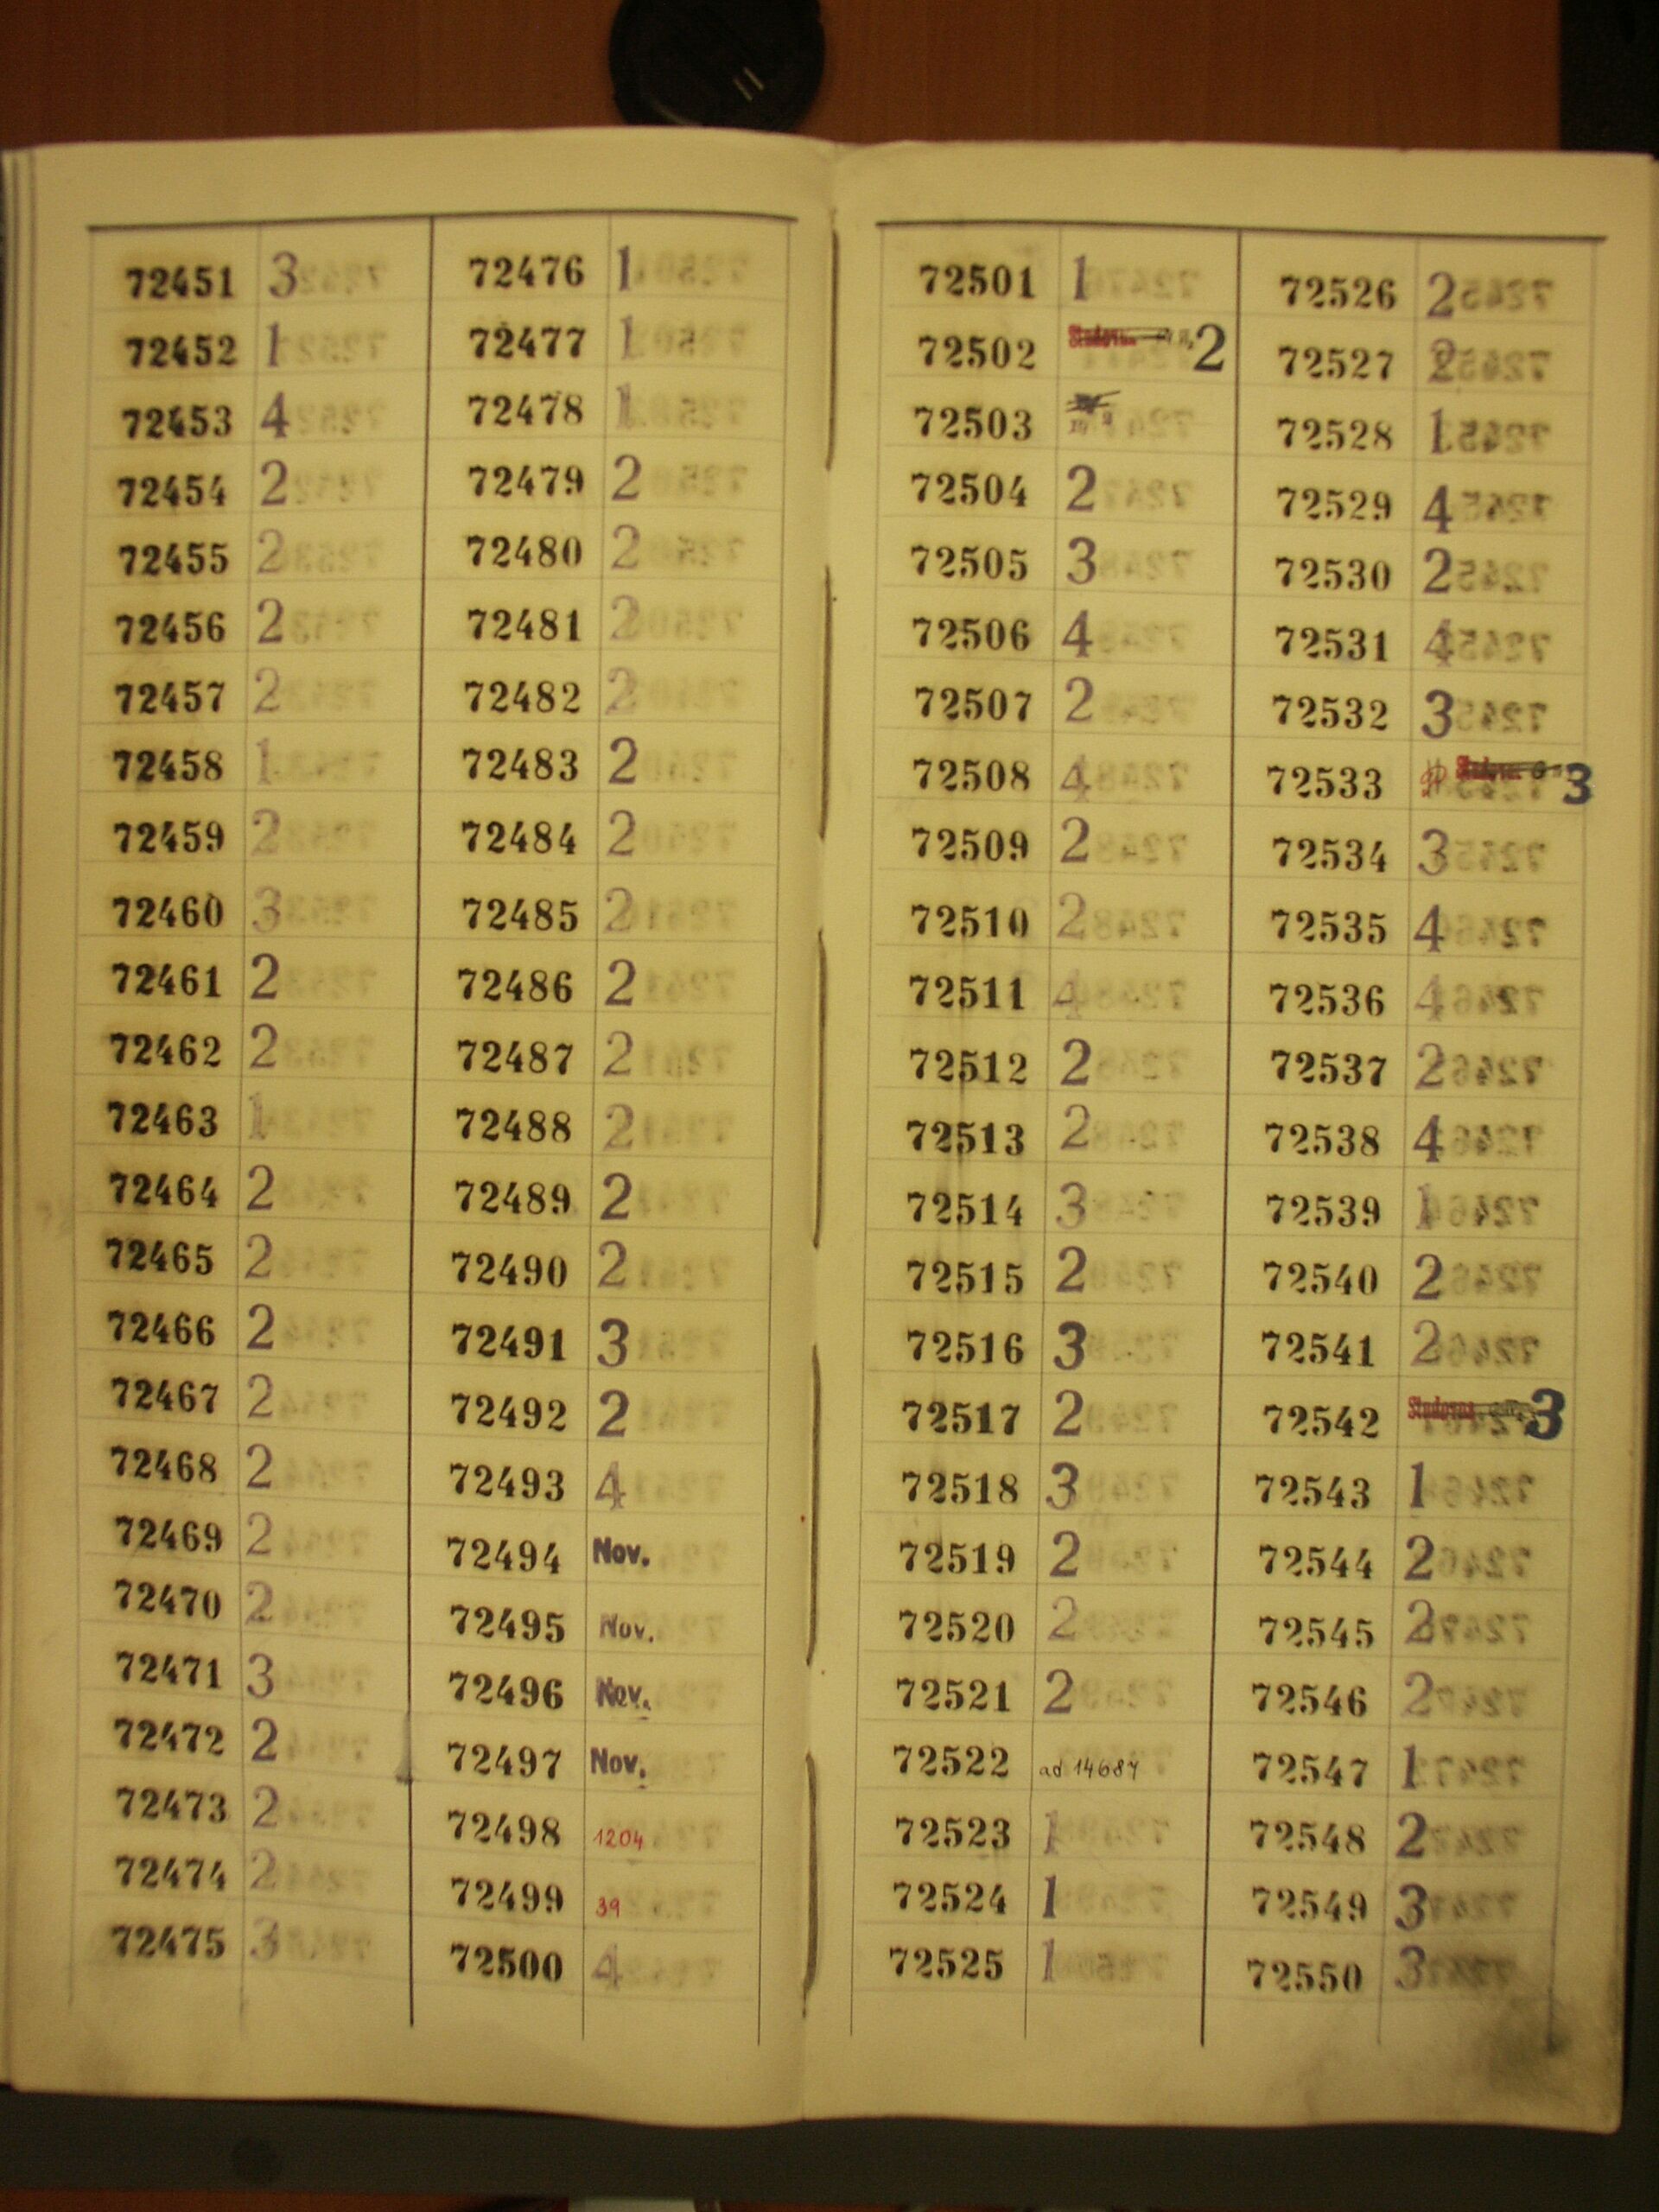 72451 3
72452 1
72453 4
72454 2
72455 2
72456 2
72457 2
72458 1
72459 2
72460 3
72461 2
72462 2
72463 1
72464 2
72465 2
72466 2
72467 2
72468 2
72469 2
72470 2
72471 3
72472 2
72473 2
72474 2
72475 3
72476 1
72477 1
72478 1
72479 2
72480 2
72481 2
72482 2
72483 2
72484 2
72485 2
72486 2
72487 2
72488 2
72489 2
72490 2
72491 3
72492 2
72493 4
72494 Nov.
72495 Nov.
72496 Nov.
72497 Nov.
72498 1204
72499 39
72500 4
72501 1
72502 Studovna 2
72503
72504 2
72505 3
72506 4
72507 2
72508 4
72509 2
72510 2
72511 4
72512 2
72513 2
72514 3
72515 2
72516 3
72517 2
72518 3
72519 2
72520 2
72521 2
72522 ad 14687
72523 1
72524 1
72525 1
72526 2
72527 2
72528 1
72529 4
72530 2
72531 4
72532 3
72533 Studovna 3
72534 3
72535 4
72536 4
72537 2
72538 4
72539 1
72540 2
72541 2
72542 Studovna 3
72543 1
72544 2
72545 2
72546 2
72547 1
72548 2
72549 3
72550 3